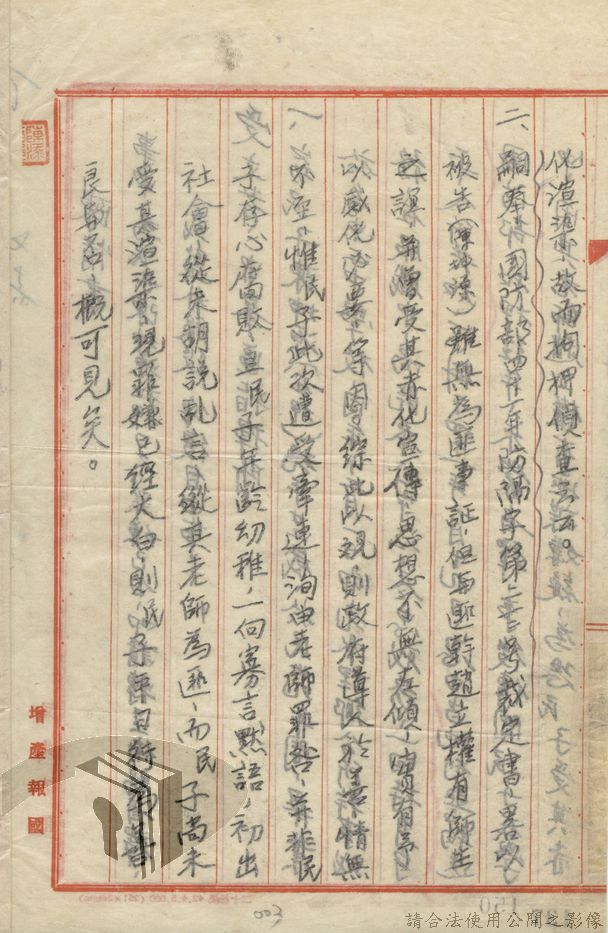 化渲染、故而拘押偵查云云。
二、嗣奉國防部四十一年防隔字第二壹號裁定書、畧以
被告(陳沖[])雖無為匪事証、但与匪幹趙立權有師生
之誤、并曾受其赤化宣傳、思想不無左傾、實有予
以感化必要、等因、綜此以观、則政府導人於善、情無
不逕、惟民子此次遭受牽連、洵由老師罪咎、并非民
子存心腐敗、且民子年齡幼稚、一向寡言默語、初出
社會、從未胡說乱言、縱其老師為匪、而民子尚未
受其渲染、現罪嫌已經大白、則民子
良與否、概可見矣。
增產報國
003
請合法使用公開之影像